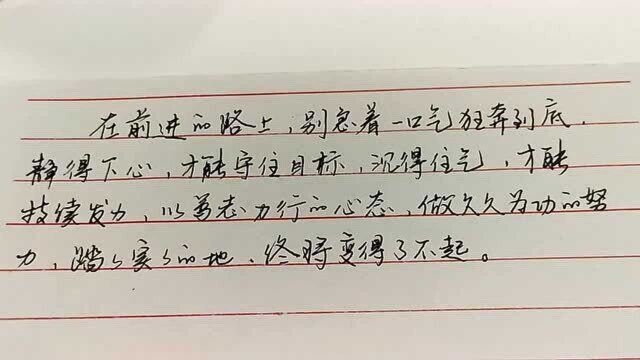 在前进的路上，别急着一口气狂奔到底，
静得下心，才能守住目标，沉得住气，才能
持续发力，以笃志力行的心态，做久久为功的努
力，踏踏实实的地，终将变得了不起。